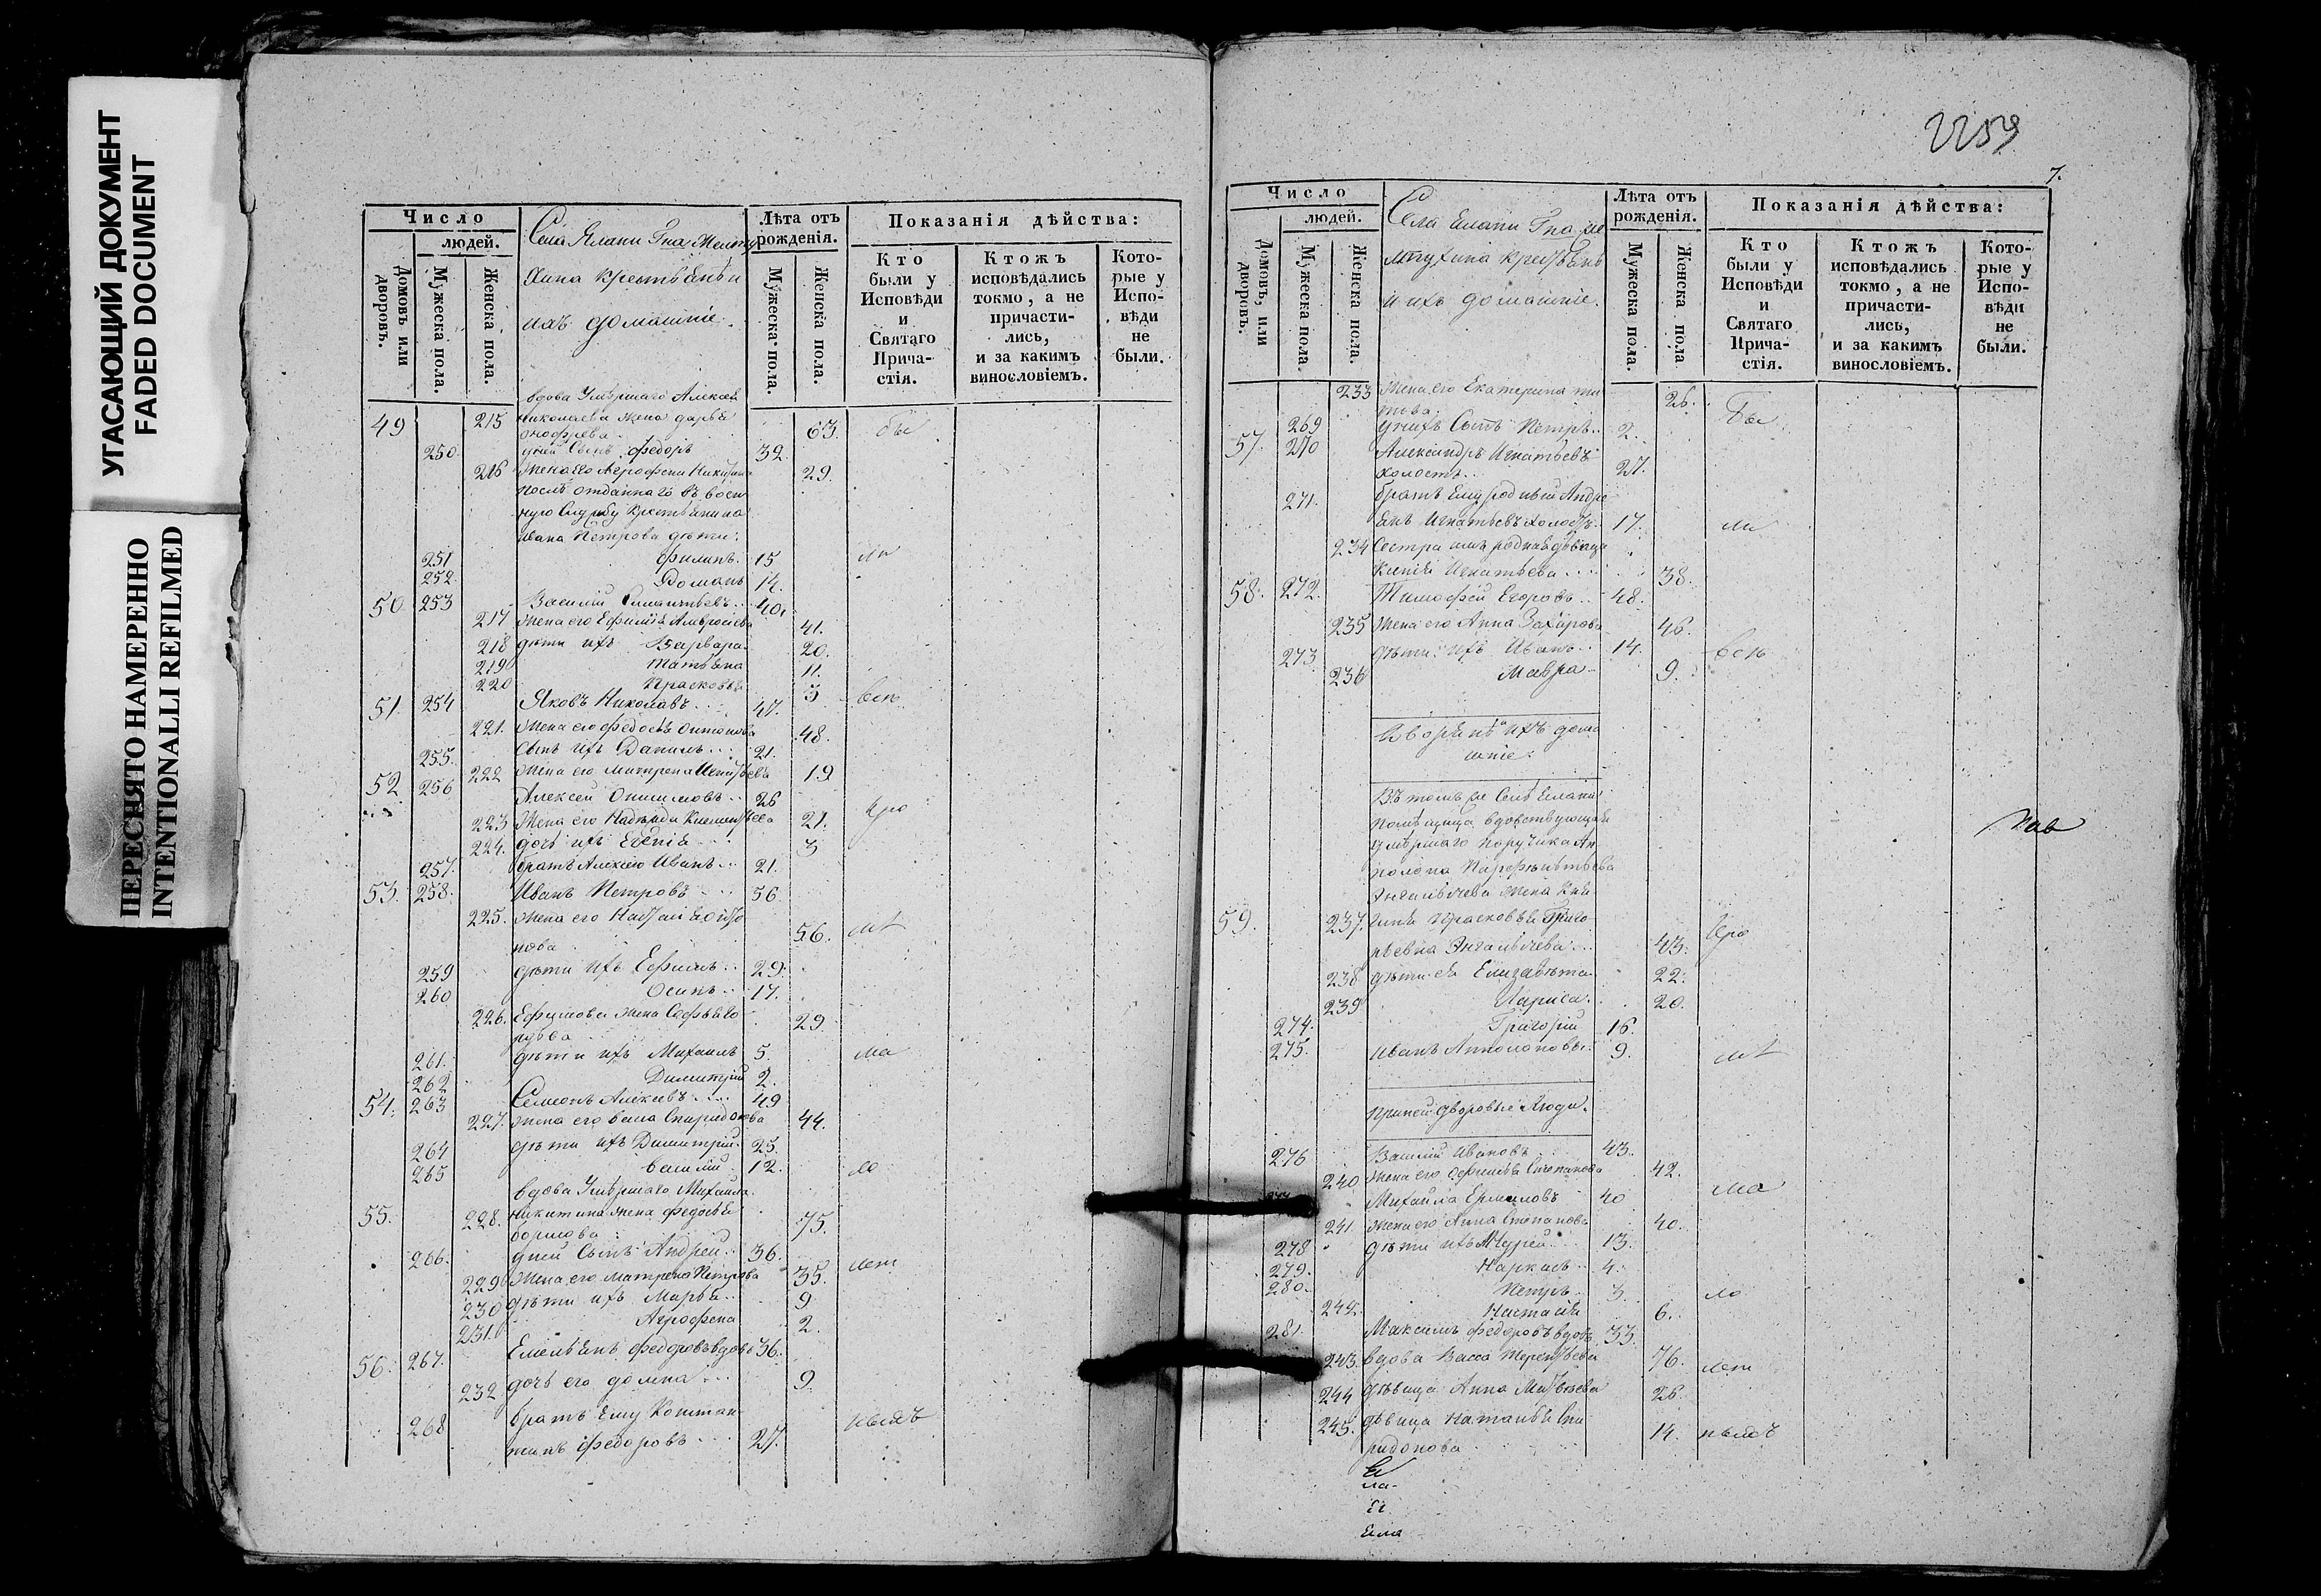 УГАСАЮЩИЙ ДОКУМЕНТ
FADED DOCUMENT
ПЕРЕСНЯТО НАМЕРЕННО
INTENTIONALLI REFILMED
Число
людей.
Домовъ или дворовъ.
Мужеска пола.
Женска пола.
Села Елани Гна Желту
хина крестьянъ и
ихъ домашніе.
Лѣта отъ
рожденія.
Мужеска пола.
Женска пола.
Показанія дѣйства:
Кто
были у
Исповѣди
и
Святаго
Прича-
стія.
Ктожъ
исповѣдались
токмо, а не
причасти-
лись,
и за какимъ
винословіемъ.
Кото-
рые у
Испо-
вѣди
не
были.
вдова Умѣршаго Алексея
49 215 Николаева жена дарья 63. бы
онофрева
250 у ней Сынъ федоръ 32.
216 Жена его Агрофена Никитина 29.
послѣ отданнаго въ воен
ную Службу крестьянина
Ивана Петрова дети:
251 филипъ. 15 ли
252. Романъ 14.
50 253 Василій 40.
217 Жена его Ефимія Амвросіева 41.
218 дети ихъ Варвара 20.
219 Татьяна 11.
220 Прасковья 3
51. 254 Яковъ Николавъ 47. всѣ
221. Жена его федосья Антонова 48.
255. Сынъ ихъ Данилъ 21.
222 Жена его матрена 19
52 256 Алексей Онисимовъ 26
223 Жена его Надежда 21. про
224. дочь ихъ Евгенія 3
257. братъ Алексею Иванъ 21.
53. 258. Иванъ Петровъ 56
225. Жена его Наталія 56.
нова
259 дѣти ихъ Ефимъ 29.
260 Осипъ 17.
226. Ефимова жена Софья 29.
261. дѣти ихъ Михаилъ 5. ма
262 Димитрій 2.
54. 263 Семенъ Алексевъ 49
227. жена его Спиридонова 44.
264 дѣти ихъ Димитрій 25.
265 василій 12. ло
вдова Умѣршаго Михаила
55. 228. Никитина жена федосья 75.
борисова
266. у ней Сынъ Андрей 36. лет
229 Жена его матрена Петрова 35.
230 дѣти ихъ Марья 9
231. Агрофена 2.
56. 267. Емельянъ федоровъ вдовъ 36.
232 дочь его домна 9.
268 братъ Ему Констан-
тинъ федоровъ 27.
2259
7.
Число
людей.
Домовъ, или дворовъ.
Мужеска пола.
Женска пола.
Села Елани Гна Же
лтухина крестьянъ
и ихъ домашніе.
Лѣта отъ
рожденія.
Мужеска пола.
Женска пола
Показанія дѣйства:
Кто
были у
Исповѣди
и
Святаго
Прича-
стія.
Ктожъ
исповѣдались
токмо, а не
причасти-
лись,
и за какимъ
винословіемъ.
Кото-
рые у
Испо-
вѣди
не
были.
233 Жена его Екатерина 26. бы
269 у нихъ Сынъ Петръ 2.
57. 270 Александръ Игнатьевъ
холостъ 27.
271. братъ Ему родный Андре
янъ Игнатьевъ холостъ 17. ли
234 Сестра имъ родная дѣвица
Игнатьева 38.
58. 272. Тимофей Егоровъ 48.
235 Жена его Анна Захарова 46.
273 дѣти ихъ Иванъ 14. всѣ
236 Мавра 9.
Дворяне и ихъ дома
шніе.
Въ томъ же Селѣ Елани
помѣщица вдовствующая
умѣршаго поручика Ап
полона
Енгалычева жена Кня-
59. 237. гиня Прасковья Григо про
рьевна Енгалычева 43.
238 дѣти ея Елизавѣта 22.
239 Лариса 20.
274. Григорій 16.
275. Иванъ Апполоновы 9.
При ней дворовые люди.
276 Василій Ивановъ 43.
240 Жена его Офимья Степанова 42.
Михайла Ермиловъ 40 ма
241. Жена его Анна Степанова 40.
278 дѣти ихъ 13.
279. 4.
280. Петръ 3. ло
242. Настасія 6.
281. Максимъ федоровъ вдовъ 33.
243. вдова Васса Терентьева 76. лет
244 дѣвица Анна Матвѣева 26.
245. дѣвица Наталья Спи
ридонова 14.
ла-
Ел
Ела